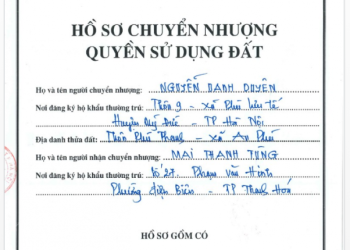 HỒ SƠ CHUYỂN NHƯỢNG
QUYỀN SỬ DỤNG ĐẤT
Họ và tên người chuyển nhượng: NGUYỄN DANH DUYÊN
Nơi đăng ký hộ khẩu thường trú: Thôn 9 - xã Phú
Huyện Mỹ Đức - TP Hà Nội
Địa danh thửa đất: Thôn Phú Thanh - xã An Phú
Họ và tên người nhận chuyển nhượng: MAI THANH TÙNG
Nơi đăng ký hộ khẩu thường trú: 27 Phạm Văn Hinh
Phường Điện Biên - TP Thanh Hoá
HỒ SƠ GỒM CÓ